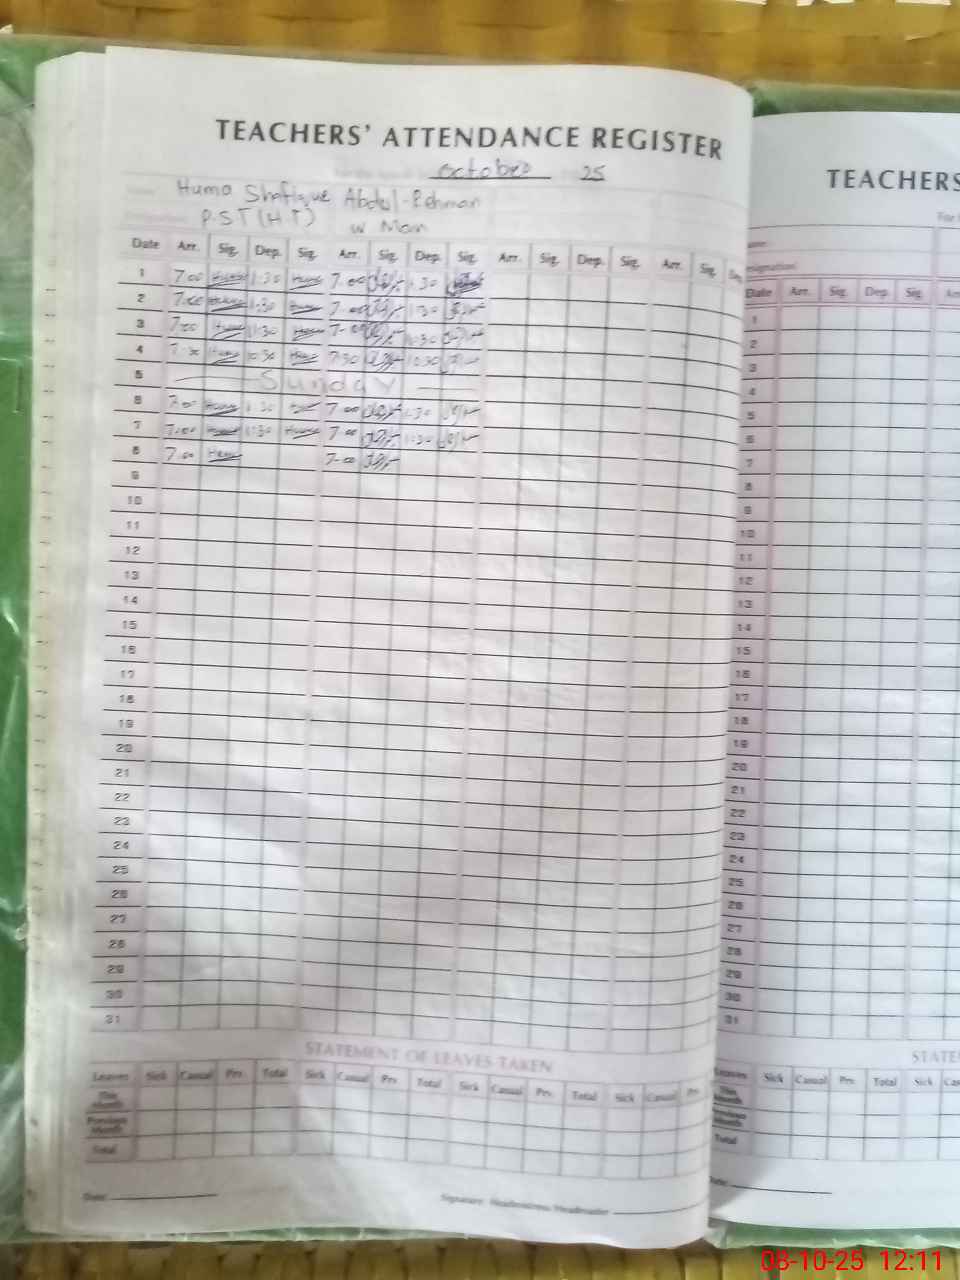 TEACHERS' ATTENDANCE REGISTER
october 25
Huma Shafique Abdul-Rehman
P.S.T (H.T) w Man
Date Arr. Sig. Dep. Sig. Arr. Sig. Dep. Sig. Arr. Sig. Dep. Sig. Arr. Sig.
1 7.00 Huma 1:30 Huma 7.00 1.30
2 7.00 Huma 1:30 Huma 7.00 1:30
3 7.00 Huma 1:30 Huma 7-00 1:30
4 7.30 Huma 10:30 Huma 7:30 10:30
5 Sunday
6 7.00 Huma 1:30 7.00 1:30
7 7.00 Huma 1:30 Huma 7.00 1:30
8 7.00 Huma 7-00
9
10
11
12
13
14
15
16
17
18
19
20
21
22
23
24
25
26
27
28
29
30
31
STATEMENT OF LEAVES TAKEN
Leaves Sick Casual Prv. Total Sick Casual Prv. Total Sick Casual Prv. Total Sick Casual Prv.
This Month
Previous Month
Total
Date: Signature: Headmistress/Headmaster
TEACHERS
For
Date Arr. Sig. Dep. Sig.
1
2
3
4
5
6
7
8
9
10
11
12
13
14
15
16
17
18
19
20
21
22
23
24
25
26
27
28
29
30
31
STATE
Leaves Sick Casual Prv. Total Sick
This Month
Previous Month
Total
Date:
08-10-25 12:11